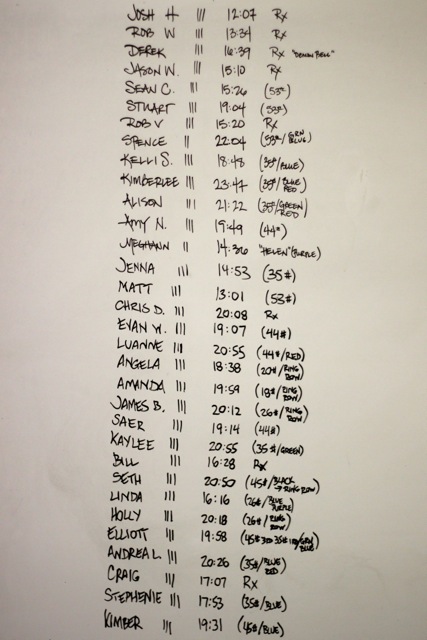 JOSH H ||| 12:07 Rx
ROB W ||| 13:34 Rx
DEREK ||| 16:39 Rx "DEMON BELL"
JASON W. ||| 15:10 Rx
SEAN C. ||| 15:26 (53#)
STUART ||| 19:04 (53#)
ROB V ||| 15:20 Rx
SPENCE || 22:04 (53#/GRN BLUE)
KELLI S. ||| 18:48 (35#/BLUE)
KIMBERLEE ||| 23:47 (35#/BLUE RED)
ALISON ||| 21:22 (35#/GREEN RED)
AMY N. ||| 19:49 (44#)
MEGHANN || 14:36 "HELEN" (PURPLE)
JENNA ||| 19:53 (35#)
MATT ||| 13:01 (53#)
CHRIS D. ||| 20:08 Rx
EVAN W. ||| 19:07 (44#)
LUANNE ||| 20:55 (44#/RED)
ANGELA ||| 18:38 (20#/RING ROW)
AMANDA ||| 19:59 (18#/RING ROW)
JAMES B. ||| 20:12 (26#/RING ROW)
SAER ||| 19:14 (44#)
KAYLEE ||| 20:55 (35#/GREEN)
BILL ||| 16:28 Rx
SETH ||| 20:50 (45#/BLACK → RING ROW)
LINDA ||| 16:16 (26#/BLUE PURPLE)
HOLLY ||| 20:18 (26#/RING ROW)
ELLIOTT ||| 19:58 (45# 35#
ANDREA L. ||| 20:26 (35#/BLUE RED)
CRAIG ||| 17:07 Rx
STEPHENIE ||| 17:53 (35#/BLUE)
KIMBER ||| 19:31 (45#/BLUE)